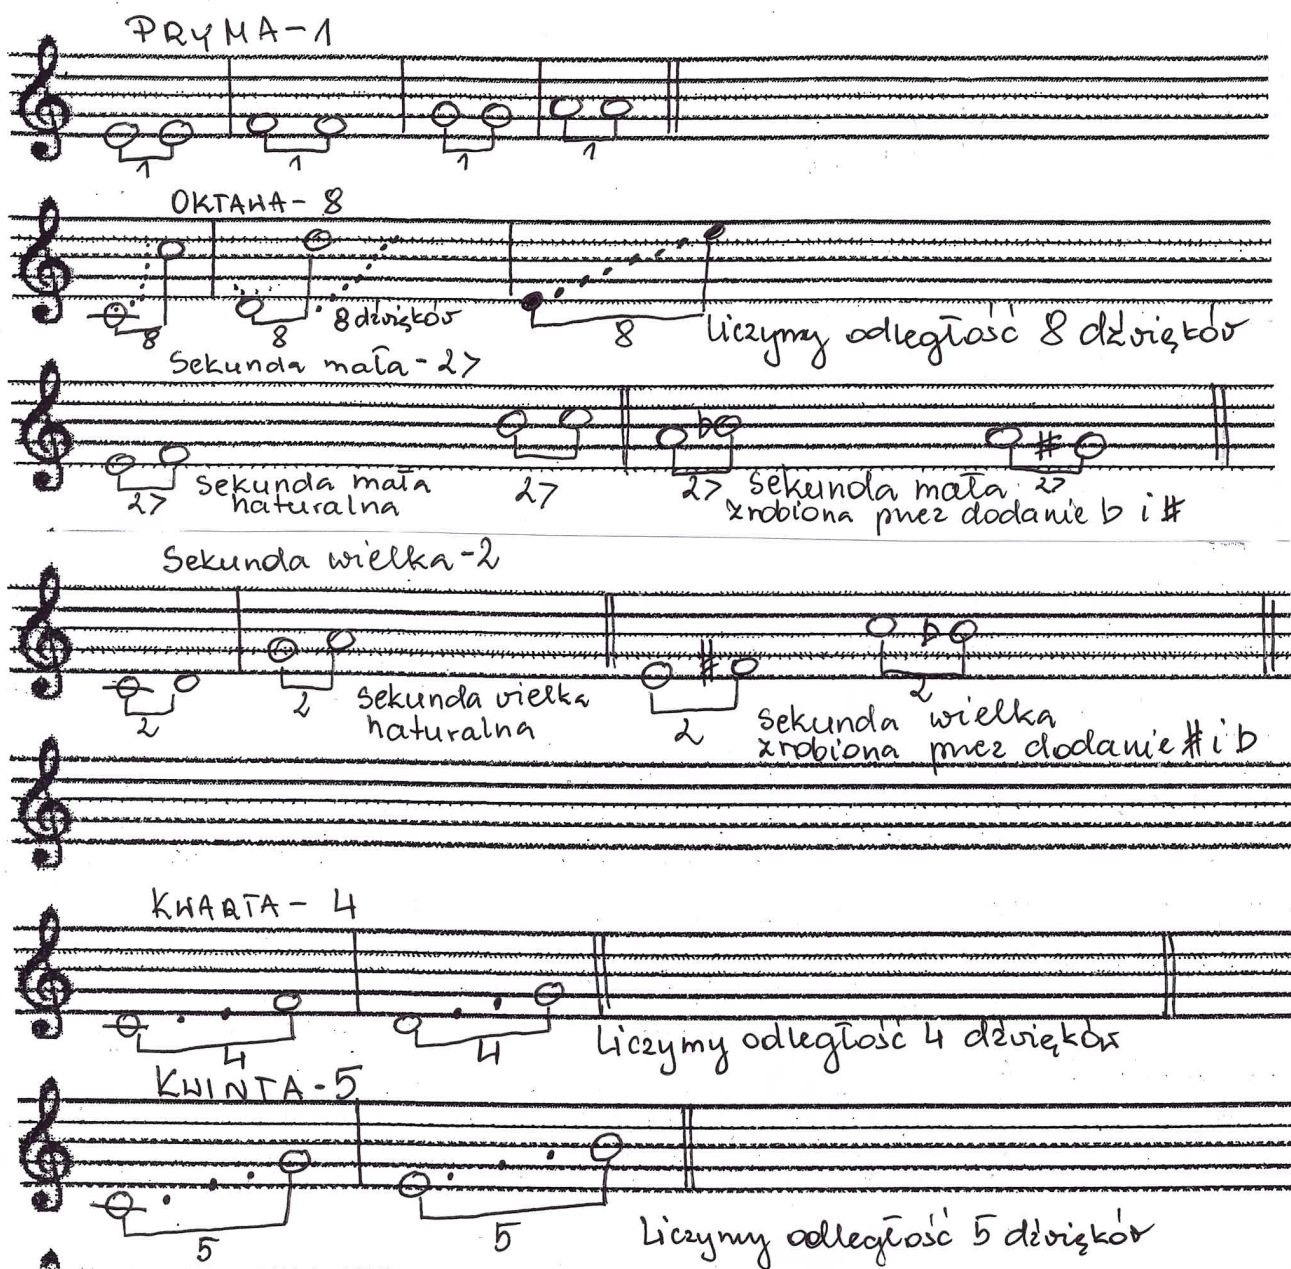 PRYMA-1
1 1 1 1
OKTAWA- 8
8 8 8 dźwięków 8 liczymy odległość 8 dźwięków
Sekunda mała-2>
2> Sekunda mała naturalna 2> 2> Sekunda mała 2>
zrobiona przez dodanie b i #
Sekunda wielka-2
2 2 Sekunda wielka naturalna 2 Sekunda wielka 2
zrobiona przez dodanie # i b
KWARTA- 4
4 4 Liczymy odległość 4 dźwięków
KWINTA-5
5 5 Liczymy odległość 5 dźwięków